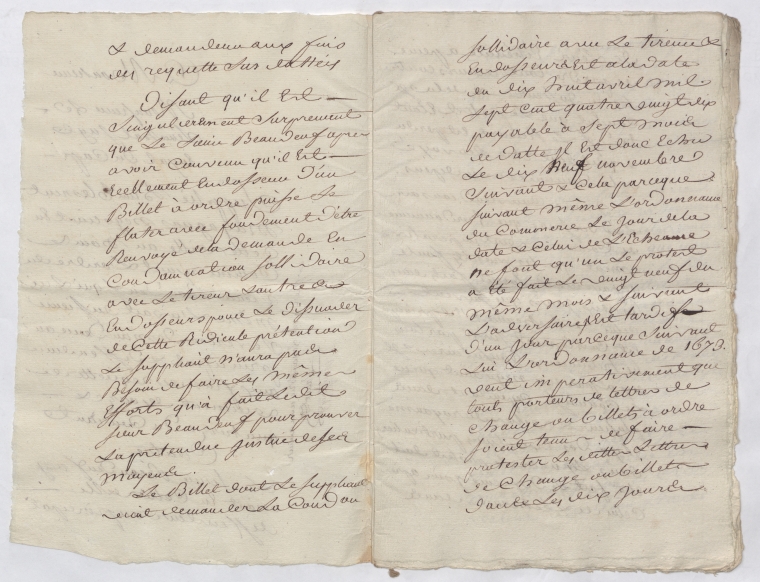 & demandeur aux fins
des requette sus dattées
Disant qu'il Est —
Singulierement Surprenant
que Le Sieur Beaudeuf apres
avoir Convenu qu'il Est —
Reellement Endosseur d'un
Billet à ordre puisse Se
flater avec fondement d'être
Renvoyé de la demande En
Condamnation sollidaire
avec Le tireur & autres
Endosseurs pour Le dissuader
de Cette Ridicule prétention
Le Suppliant n'aura pas
Besoin de faire Les mêmes
Efforts qu'à fait Ledit
Sieur Beaudeuf pour prouver
La pretendue justice de ses
moyens.
Le Billet dont Le Suppliant
vient demander La Condam
sollidaire avec Le tireur &
Endosseurs Est a la date
du dix huit avril mil
Sept Cent quatre vingt dix
payable à Sept mois
de datte Il Est donc Echeu
Le dix neuf novembre
Suivant & Cela parceque
suivant même L'ordonnance
du Commerce Le jour de la
date & Celui de L'Echeance
ne font qu'un Le protest
a été fait Le vingt neuf du
même mois & suivant
L'adversaire Est tardif
d'un jour parceque Suivant
Lui L'ordonnance de 1673.
veut imperativement que
touts porteurs de lettres de
Change ou billets à ordre
soient tenus de faire —
protester Les dittes Lettres
de Change ou billets
dans Les dix jours